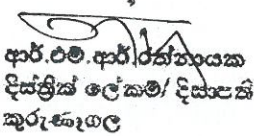 ආර්.එම්.ආර්.රත්නායක
දිස්ත්‍රික් ලේකම්/ දිසාපති
කුරුණෑගල